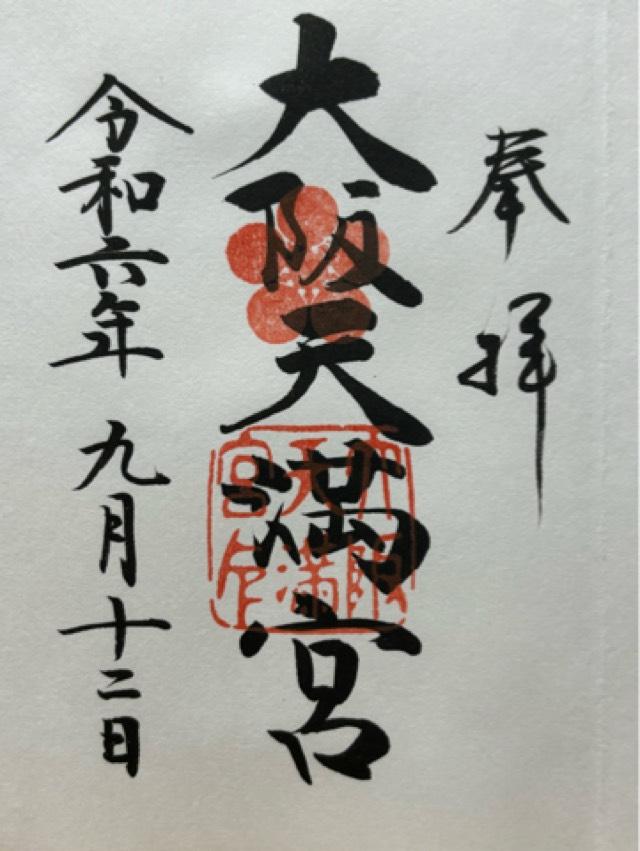 奉拝
大阪天満宮
大阪天満宮印
令和六年九月十二日